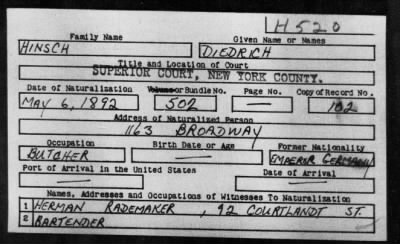 H520
Family Name Given Name or Names
HINSCH DIEDRICH
Title and Location of Court
SUPERIOR COURT, NEW YORK COUNTY.
Date of Naturalization Volume or Bundle No. Page No. Copy of Record No.
MAY 6, 1892 502 — 102
Address of Naturalized Person
1163 BROADWAY
Occupation Birth Date or Age Former Nationality
BUTCHER — EMPEROR GERMANY
Port of Arrival in the United States Date of Arrival
— —
Names, Addresses and Occupations of Witnesses To Naturalization
1 HERMAN RADEMAKER, 92 COURTLANDT ST.
2 BARTENDER